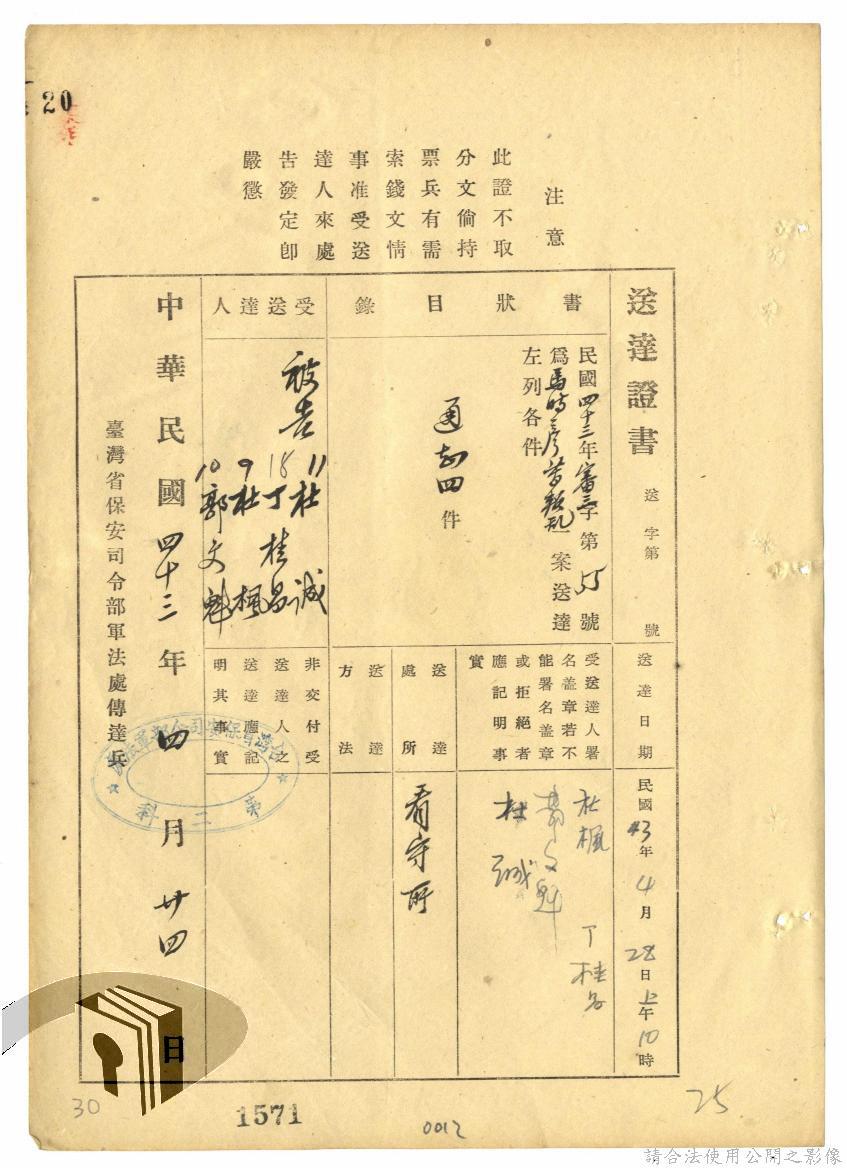 20
注意
此證不取
分文倘持
票兵有需
索錢文情
事准受送
達人來處
告發定卽
嚴懲
送達證書
送字第 號
送達日期
民國43年4月28日上午10時
書狀目錄
民國四十三年審三字第55號
為馬時彥等叛亂一案送達
左列各件
通知四件
受送達人署
名蓋章若不
能署名蓋章
或拒絕者
應記明事
實
杜楓
丁桂昌
郭文魁
杜誠
送達處所
看守所
送達方法
受送達人
被告
11杜誠
18丁桂昌
9杜楓
10郭文魁
非交付受
送達人之
送達應記
明其事實
中華民國四十三年四月廿四日
臺灣省保安司令部軍法處傳達兵
台灣省保安司令部軍法處
第二科
30
1571
0012
25
請合法使用公開之影像